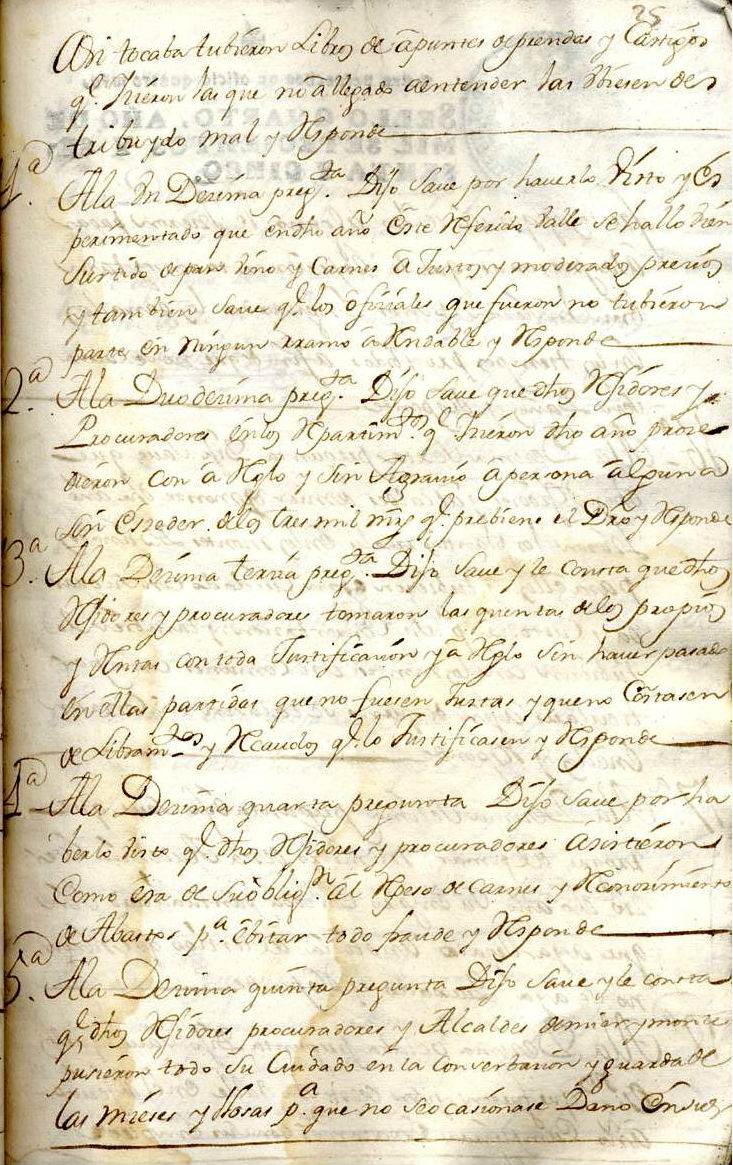 25
Asi tocaba tubieron Libros de apuntes de prendas y Castigos
q.e hizieron las que no a llegado a entender las hiziesen des
tribuydo mal y Responde
1ª A la Un Dezima preg.ta Dijo save por haverlo visto y Es
perimentado que en dho año Este Referido Valle se hallo vien
Surtido de pan vino y Carnes a Justos y moderados precios
y tambien save q.e los ofiziales que fueron no tubieron
parte en ningun rramo a Rendable y Responde
2ª. A la Duodezima preg.ta Dijo save que dhos Rejidores y
Procuradores en los Repartim.tos q.e hizieron dho año proze
dieron con a Reglo y sin Agravio a persona alguna
sin Eszeder de los tres mil mrs q.e prebiene el Dro y Responde
3ª. A la Dezima terzia preg.ta Dijo save y le consta que dhos
Rejidores y procuradores tomaron las quentas de los propios
y Rentas con toda Justificazion y a Reglo sin haver pasado
en ellas partidas que no fuesen Justas y que no Costasen
de Libram.tos y Recados q.e lo Justificasen y Responde
4ª A la Dezima quarta pregunta Dijo save por ha
berlo visto q.e dhos Rejidores y procuradores Asistieron
Como era de su oblig.n al Repeso de Carnes y Reconozimiento
de Abastos p.a Ebitar todo fraude y Responde
5ª. A la Dezima quinta pregunta Dijo save y le consta
q.e dhos Rejidores procuradores y Alcaldes de mies y monte
pusieron todo su Cuidado en la Conserbazion y guarda de
las mieses y Llosas p.a que no se ocasionase Daño En sus